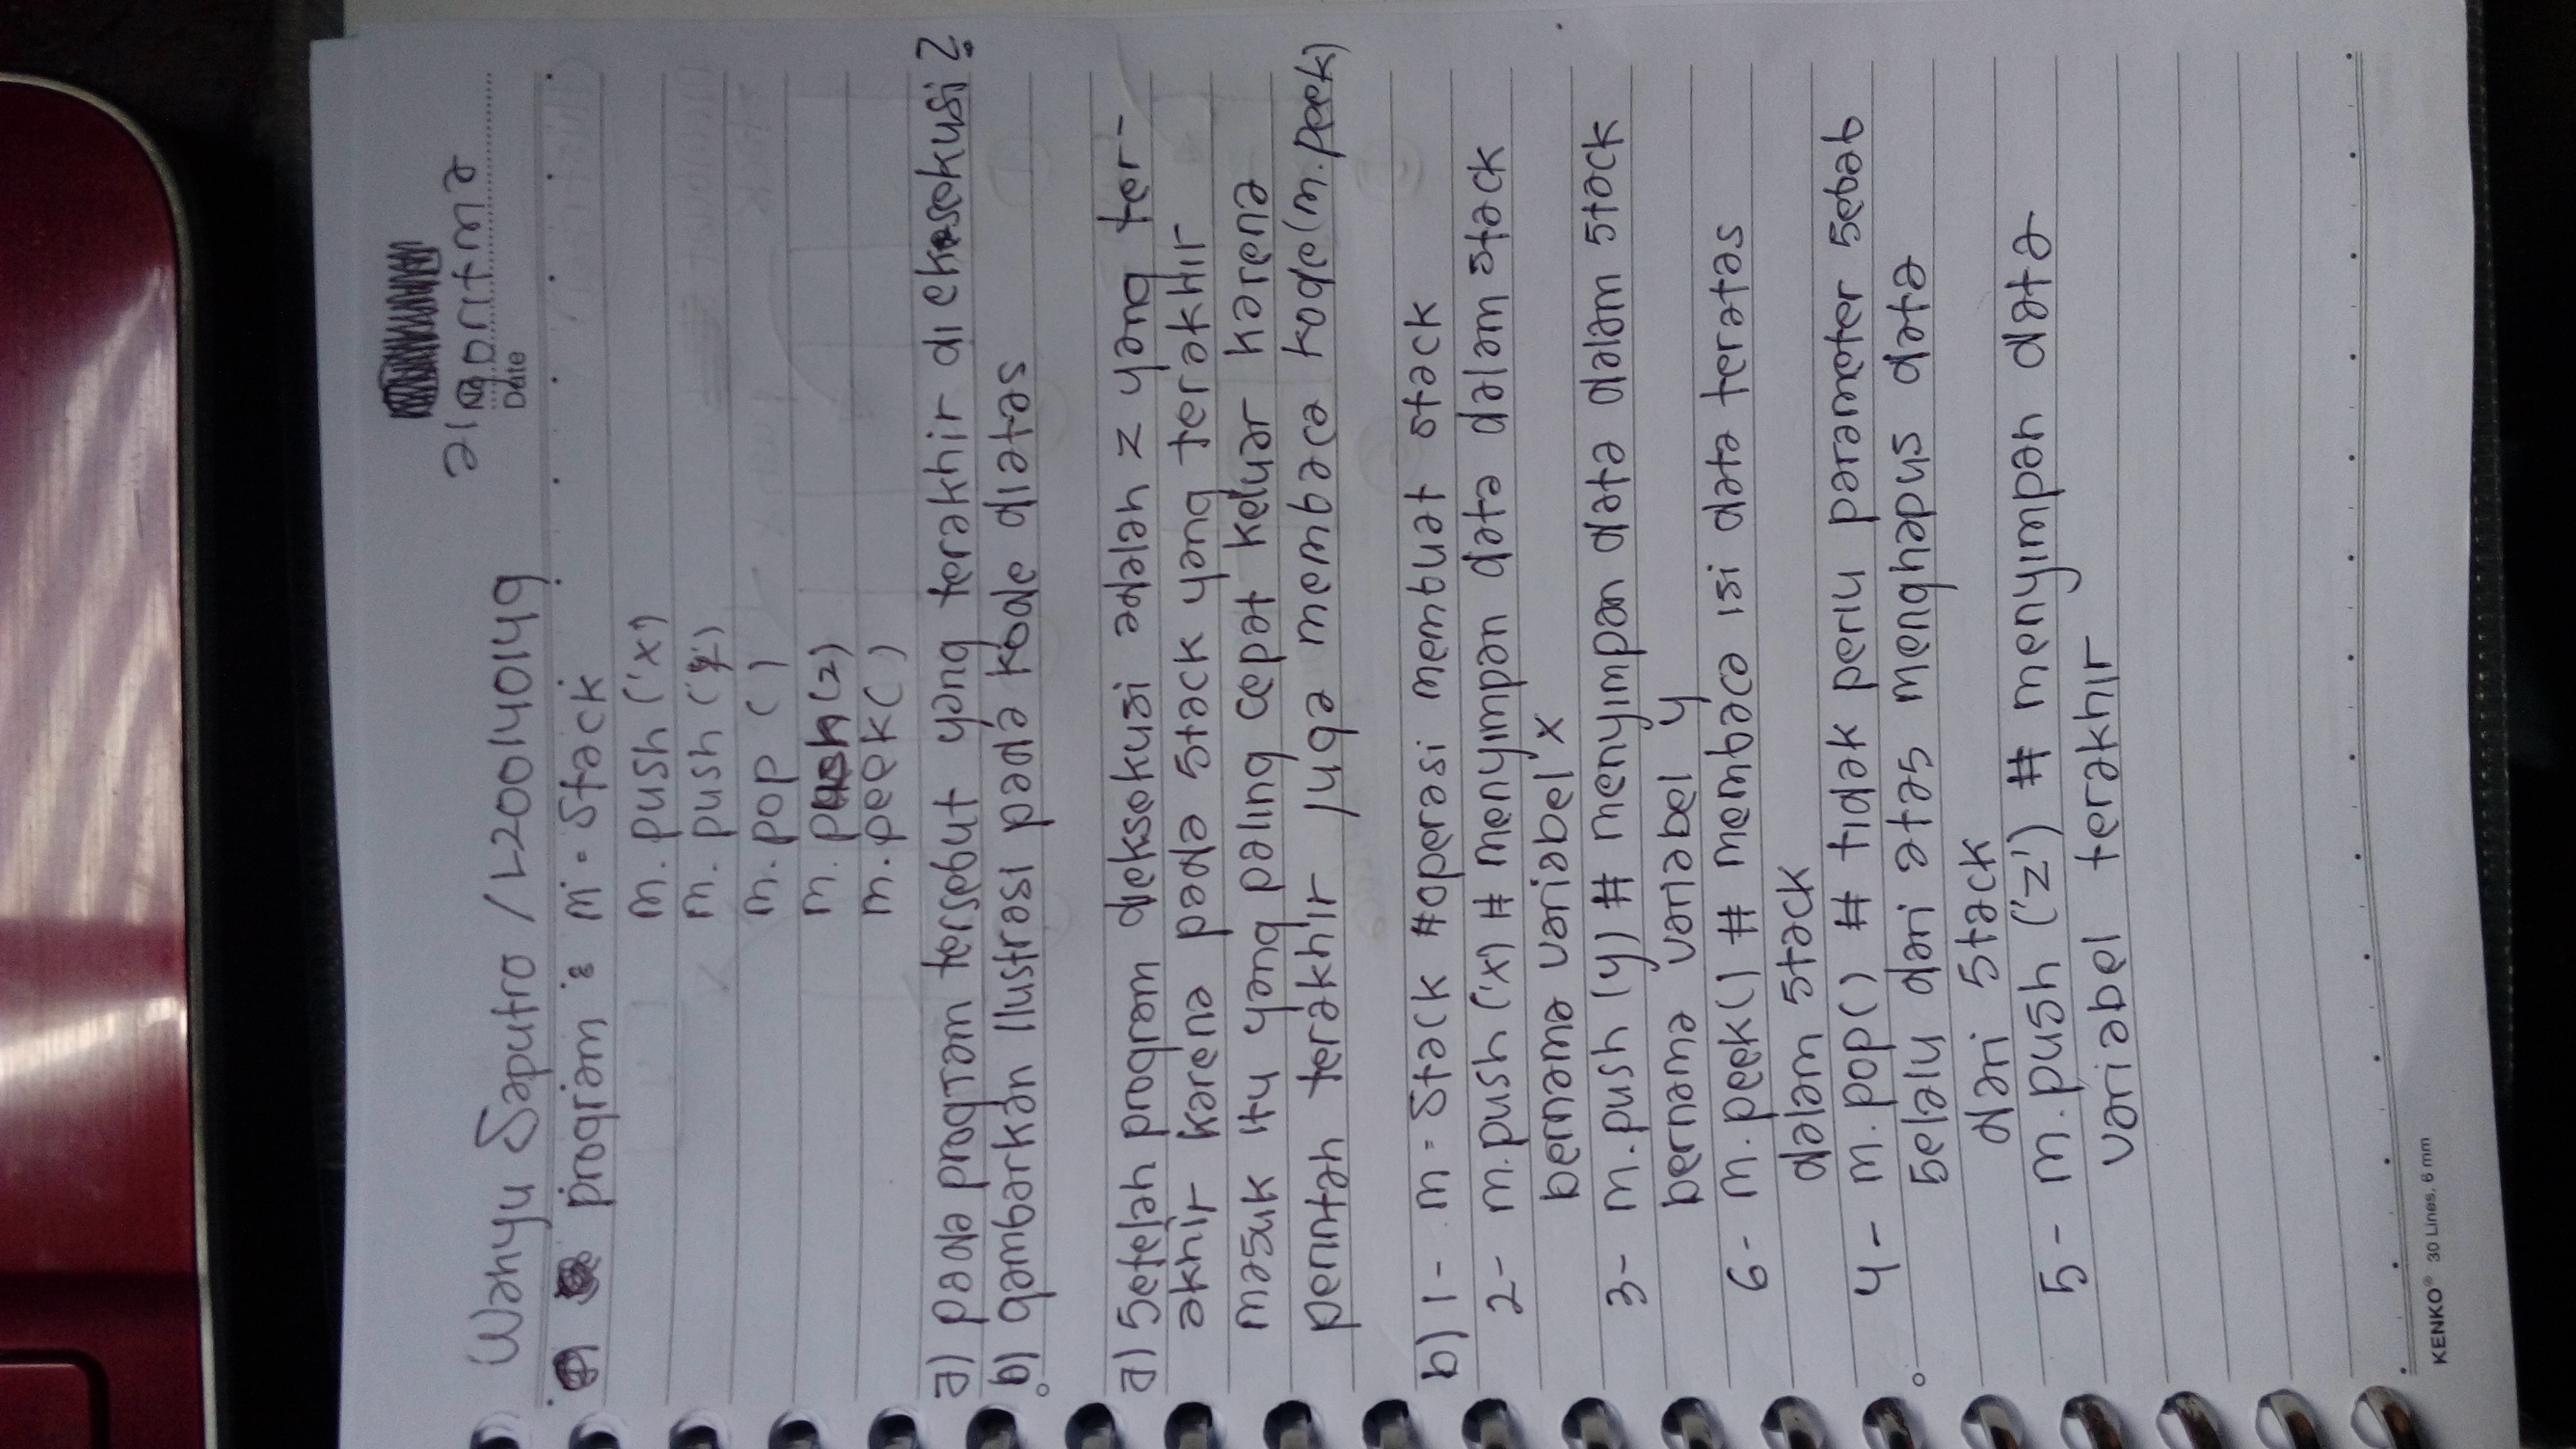 algoritma
No
Date
Wahyu Saputro / L200140149
program : m = Stack
m. push ('x')
m. push ('y')
m. pop ( )
m. push (z)
m. peek ( )
a) pada program tersebut yang terakhir di eksekusi?
b) gambarkan ilustrasi pada kode diatas
a) Setelah program dieksekusi adalah z yang ter-
akhir karena pada stack yang terakhir
masuk itu yang paling cepat keluar karena
perintah terakhir juga membaca kode (m. peek)
b) 1 - m = Stack #operasi membuat stack
2 - m.push ('x') # menyimpan data dalam stack
bernama variabel x
3 - m.push (y) # menyimpan data dalam stack
bernama variabel y
6 - m. peek() # membaca isi data teratas
dalam stack
4 - m. pop() # tidak perlu parameter sebab
selalu dari atas menghapus data
dari stack
5 - m. push ('z') # menyimpan data
variabel terakhir
KENKO® 30 Lines, 6 mm